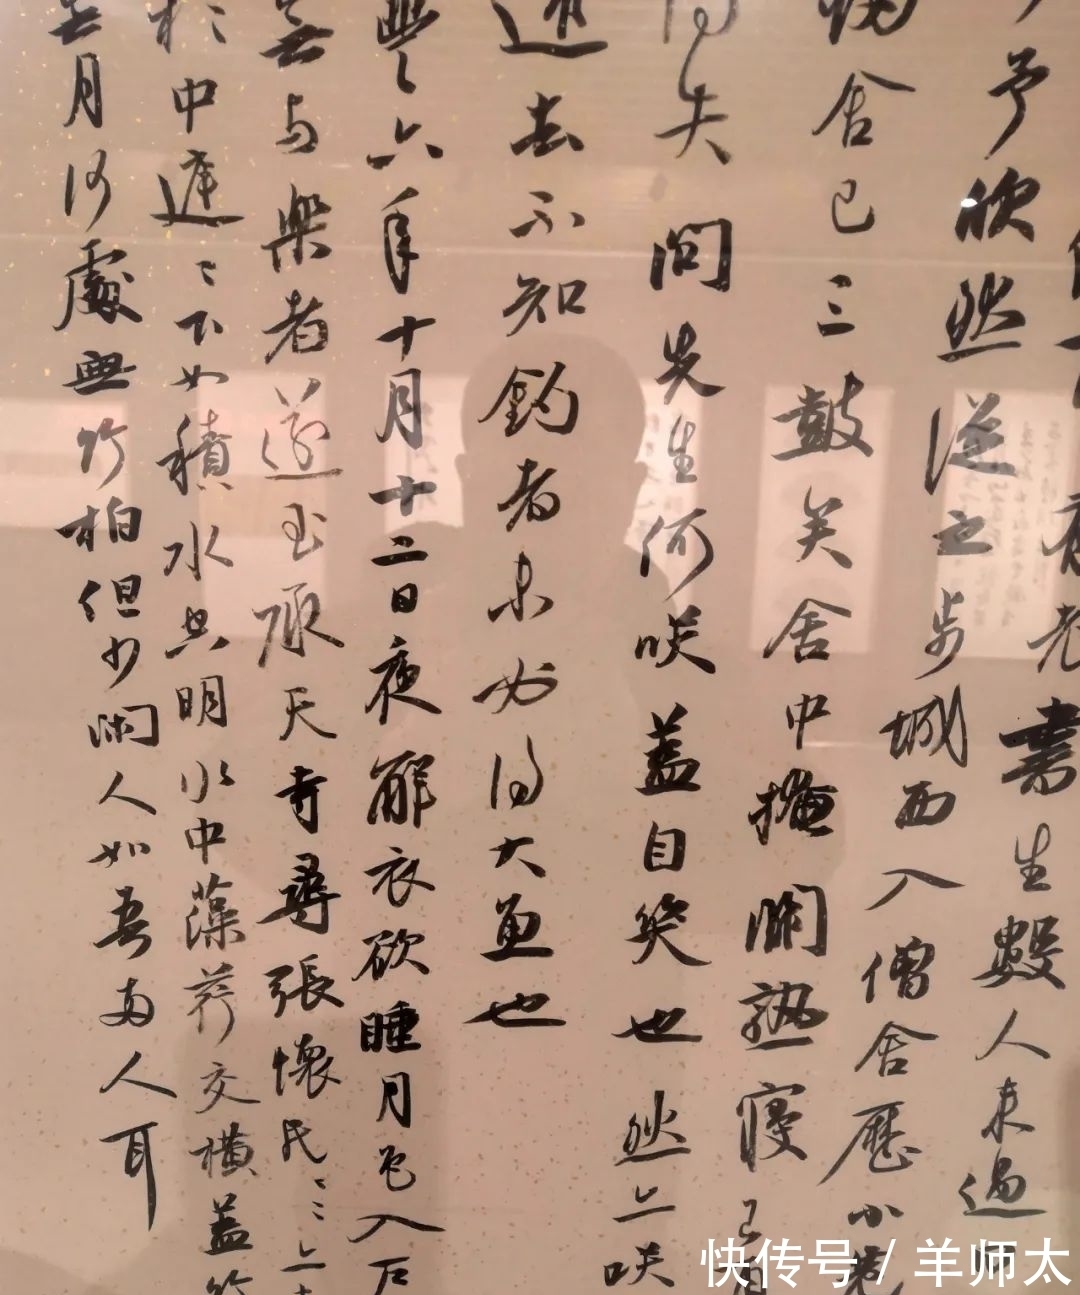 老書生數人來過
予欣然從之步城西入僧舍歷小巷
舍已三鼓矣舍中掩關熟寢已再
得失問先生何咲蓋自笑也然亦咲
遠去不知釣者未必得大魚也
豐六年十月十二日夜解衣欲睡月色入戶
無与樂者遂至承天寺尋張懷民〻〻亦
於中庭〻〻下如積水空明水中藻荇交橫蓋竹
無月何處無竹柏但少閑人如吾兩人耳
快传号 / 羊师太